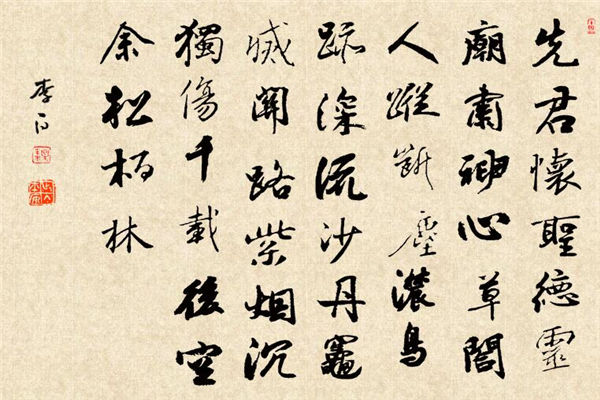 先君懷聖德靈
廟肅神心草閤
人蹤斷塵濃鳥
跡深流沙丹竈
滅開路紫烟沉
獨傷千載後空
余松柏林
李白